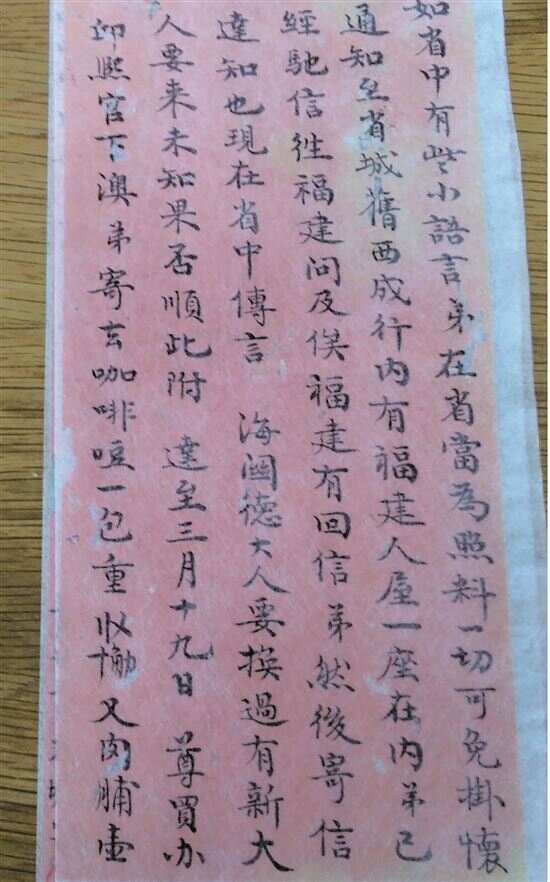 如省中有些小語言弟在省當為照料一切可免掛懷
通知至省城舊西成行內有福建人屋一座在內弟已
經馳信徃福建问及俟福建有回信弟然後寄信
達知也現在省中傳言　海關德大人要換過有新大
人要来未知果否順此附　達至三月十九日　尊買办
邱熙官下澳弟寄去咖啡荳一包重 又肉脯壹